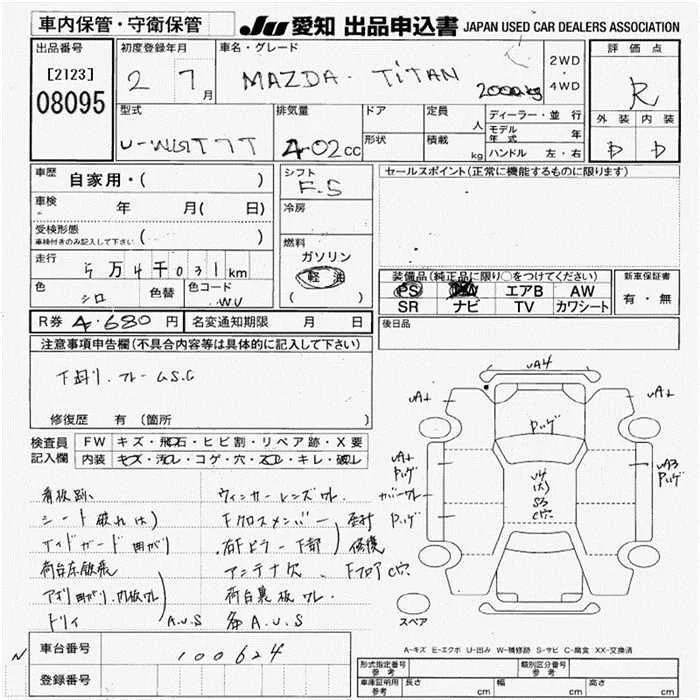 車内保管・守衛保管
JU 愛知 出品申込書 JAPAN USED CAR DEALERS ASSOCIATION
出品番号
[2123]
08095
初度登録年月
2 7月
車名・グレード
MAZDA. TiTAN 2000kg
2WD
・
4WD
評価点
R
外装 内装
D D
型式
排気量
4.02cc
ドア
形状
定員
人
積載
kg
ディーラー・並行
モデル年式 年
ハンドル 左・右
車歴
自家用・( )
車検
年 月( 日)
受検形態
車検付きのみ記入して下さい ( )
走行
5万4千031km
色
シロ
色替
色コード
WU
シフト
F.5
冷房
燃料
ガソリン
軽油
( )
セールスポイント(正常に機能するものに限ります)
装備品(純正品に限り○をつけてください)
PS PW エアB AW
SR ナビ TV カワシート
新車保証書
有・無
後日品
R券 4.680円
名変通知期限 月 日
注意事項申告欄(不具合内容等は具体的に記入して下さい)
下廻リ.フレームS.C
修復歴 有(箇所 )
検査員
記入欄
FW キズ・飛石・ヒビ割・リペア跡・X要
内装 キズ・汚レ・コゲ・穴・ズレ・キレ・破レ
看板跡
シート破れ
サイドガード曲がり
ウィンカーレンズワレ
Fクロスメンバー
右Fピラー下部
アンテナ欠
FフロアC穴
荷台裏板ワレ
A.U.S
A.U.S
UA4
UA+
UA+
UA3
スペア
A-キズ E-エクボ U-凹み W-補修跡 S-サビ C-腐食 XX-交換済
車台番号
100624
登録番号
形式指定番号
参考
類別区分番号
参考
車庫証明用
参考
長さ cm
幅 cm
高さ cm